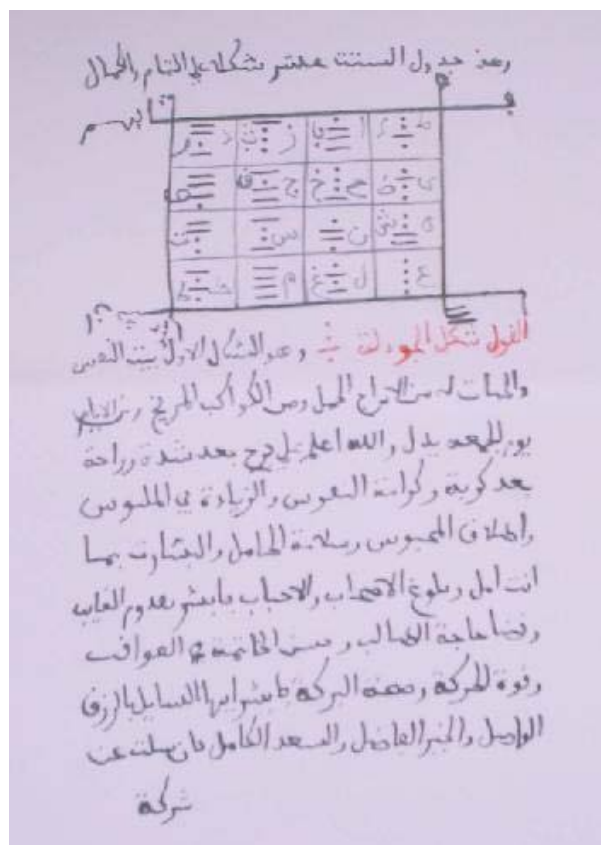 وهذ جدول الستت عشر شكلا علي التمام والكمال
القول شكل المودة وهو الشكل الاول بيت النفس
والحيات له من الابراج الحمل ومن الكواكب المريخ ومن الايام
يوم الجمعه يدل والله اعلم علي فرج بعد شدة وراحة
بعد كربة وكرامة النفوس والزيادة في الملبوس
واطلاق المحبوس وسلامة الحامل والبشارت بما
انت امل وبلوغ الاصحاب والاحباب يا بشر بقدوم الغايب
وقضا حاجة الطالب وحسن الخاتمة في العواقب
وقوة الحركة وهذه البركة يا بشر ايها السايل بالرزق
الواصل والخير الفاضل والسعد الكامل فان سالت عن
شركة